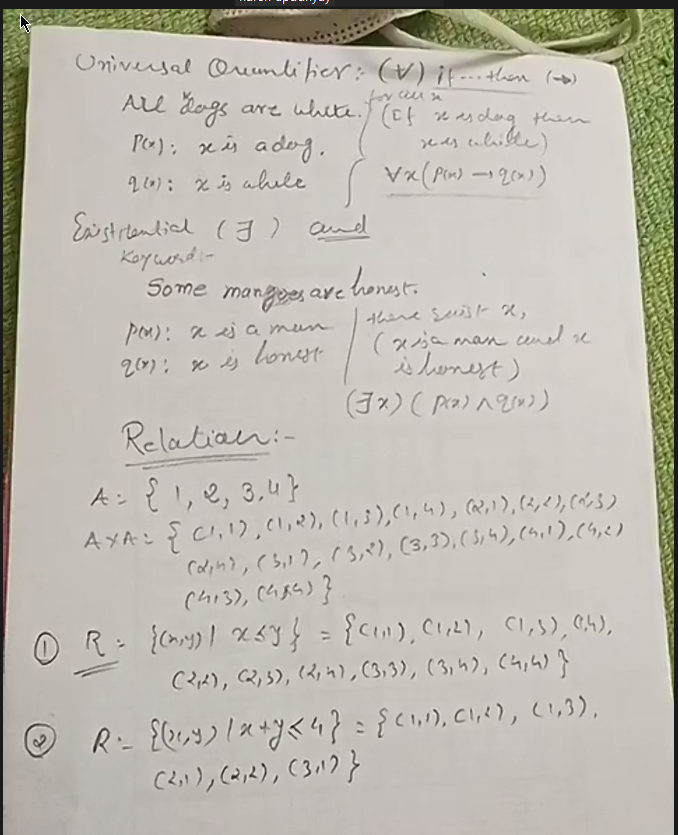 Universal Quantifier: (∀) if---then (→)
All dogs are white.
for all x
(If x is dog then
x is white)
P(x): x is a dog.
q(x): x is while
∀x(P(x) → q(x))
Existential (∃) and
Keyword:-
Some mangoes are honest.
P(x): x is a man
q(x): x is honest
there exist x,
(x is a man and x
is honest)
(∃x) (P(x) ∧ q(x))
Relation:-
A = { 1, 2, 3, 4}
A×A = { (1,1), (1,2), (1,3), (1,4), (2,1), (2,2), (2,3)
(2,4), (3,1), (3,2), (3,3), (3,4), (4,1), (4,2)
(4,3), (4,4) }
① R = {(x,y) | x ≤ y} = {(1,1), (1,2), (1,3), (1,4),
(2,2), (2,3), (2,4), (3,3), (3,4), (4,4) }
② R = {(x,y) | x+y ≤ 4} = {(1,1), (1,2), (1,3),
(2,1), (2,2), (3,1) }